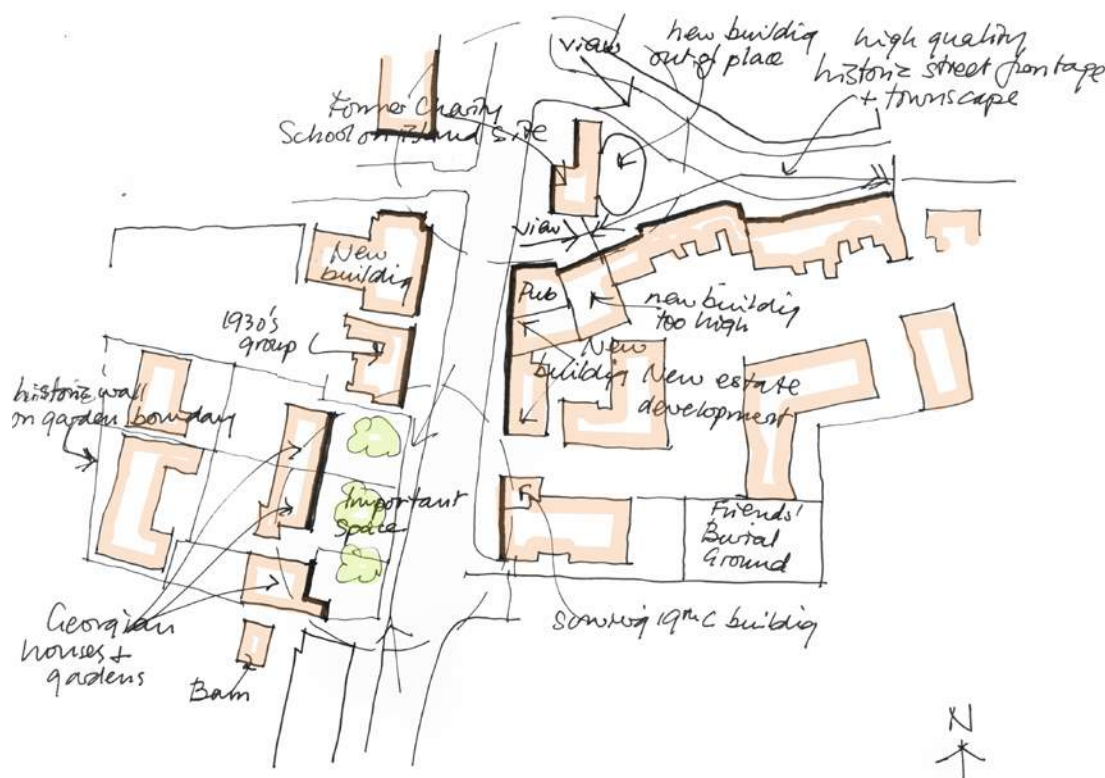 view
new building
out of place
high quality
historic street frontage
+ townscape
Former Charity
School on island site
view
New
building
Pub
new building
too high
1930's
group
New
building
New estate
development
historic wall
on garden boundary
Important
Space
Friends'
Burial
Ground
Georgian
houses +
gardens
Barn
19th C building
N